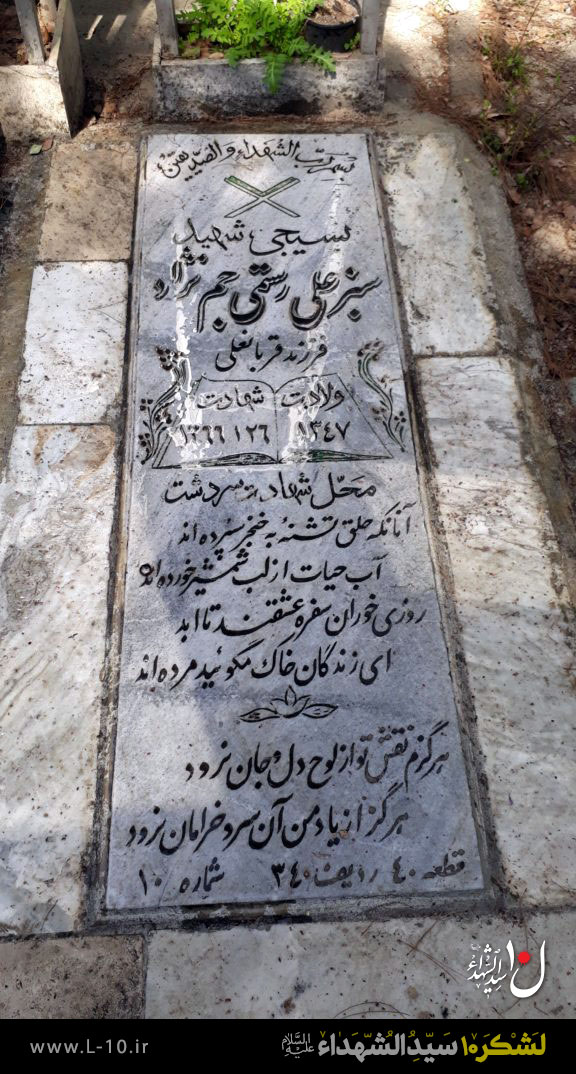 بسم رب الشهداء والصدیقین
بسیجی شهید
سبزعلی رستمی جم نژاد
فرزند قربانعلی
ولادت شهادت
۱۳۴۷ ۱۳۶۶ ۱۲۶
محل شهادت سردشت
آنانکه حلق تشنه به خنجر سپرده اند
آب حیات از لب شمشیر خورده اند
روزی خوران سفره عشقند تا ابد
ای زندگان خاک مگوئید مرده اند
هرگزم نقش تو از لوح دل و جان نرود
هرگز از یاد من آن سرو خرامان نرود
قطعه ۴۰ ردیف ۳۴۰ شماره ۱۰
ل۱۰ سیدالشهداء
لَشکَر۱۰ سَیِّدُالشُّهَداء علیه السلام
www.L-10.ir